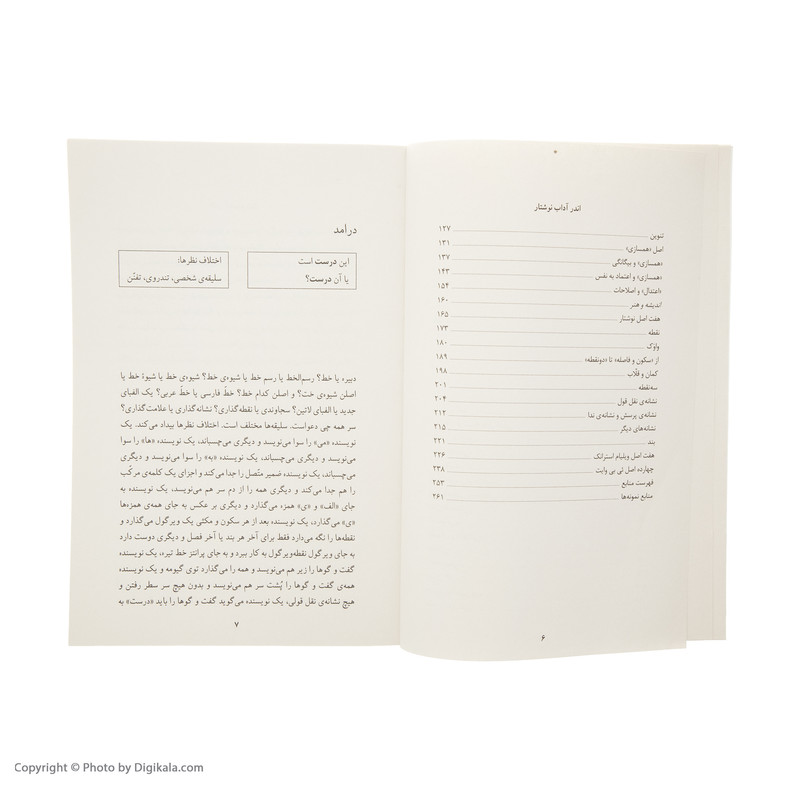 اندر آداب نوشتار
تنوین ۱۲۷
اصل «همسازی» ۱۳۱
«همسازی» و بیگانگی ۱۳۷
«همسازی» و اعتماد به نفس ۱۴۳
«اعتدال» و اصلاحات ۱۵۴
اندیشه و هنر ۱۶۰
هفت اصل نوشتار ۱۶۵
نقطه ۱۷۳
واوک ۱۸۰
از «سکون و فاصله» تا «دونقطه» ۱۸۹
کمان و قلاب ۱۹۸
سه‌نقطه ۲۰۱
نشانه‌ی نقل قول ۲۰۴
نشانه‌ی پرسش و نشانه‌ی ندا ۲۱۲
نشانه‌های دیگر ۲۱۵
بند ۲۲۱
هفت اصل ویلیام استرانک ۲۲۶
چهارده اصل ئی بی وایت ۲۳۸
فهرست منابع ۲۵۳
منابع نمونه‌ها ۲۶۱
۶
درامد
این درست است
یا آن درست؟
اختلاف نظرها:
سلیقه‌ی شخصی، تندروی، تفنّن
دبیره یا خط؟ رسم‌الخط یا رسم خط یا شیوه‌ی خط؟ شیوه‌ی خط یا شیوهٔ خط یا
اصلن شیوه‌ی خت؟ و اصلن کدام خط؟ خطّ فارسی یا خطّ عربی؟ یک الفبای
جدید یا الفبای لاتین؟ سجاوندی یا نقطه‌گذاری؟ نشانه‌گذاری یا علامت‌گذاری؟
سر همه چی دعواست. سلیقه‌ها مختلف است. اختلاف نظرها بیداد می‌کند. یک
نویسنده «می» را سوا می‌نویسد و دیگری می‌چسباند، یک نویسنده «ها» را سوا
می‌نویسد و دیگری می‌چسباند، یک نویسنده «به» را سوا می‌نویسد و دیگری
می‌چسباند، یک نویسنده ضمیر متّصل را جدا می‌کند و اجزای یک کلمه‌ی مرکّب
را هم جدا می‌کند و دیگری همه را از دم سر هم می‌نویسد، یک نویسنده به
جای «الف» و «ی» همزه می‌گذارد و دیگری بر عکس به جای همه‌ی همزه‌ها
«ی» می‌گذارد، یک نویسنده بعد از هر سکون و مکثی یک ویرگول می‌گذارد و
نقطه‌ها را نگه می‌دارد فقط برای آخر هر بند یا آخر فصل و دیگری دوست دارد
به جای ویرگول نقطه‌ویرگول به کار ببرد و به جای پرانتز خط تیره، یک نویسنده
گفت و گوها را زیر هم می‌نویسد و همه را می‌گذارد توی گیومه و یک نویسنده
همه‌ی گفت و گوها را پُشت سر هم می‌نویسد و بدون هیچ سر سطر رفتن و
هیچ نشانه‌ی نقل قولی، یک نویسنده می‌گوید گفت و گوها را باید «درست» به
۷
Copyright © Photo by Digikala.com